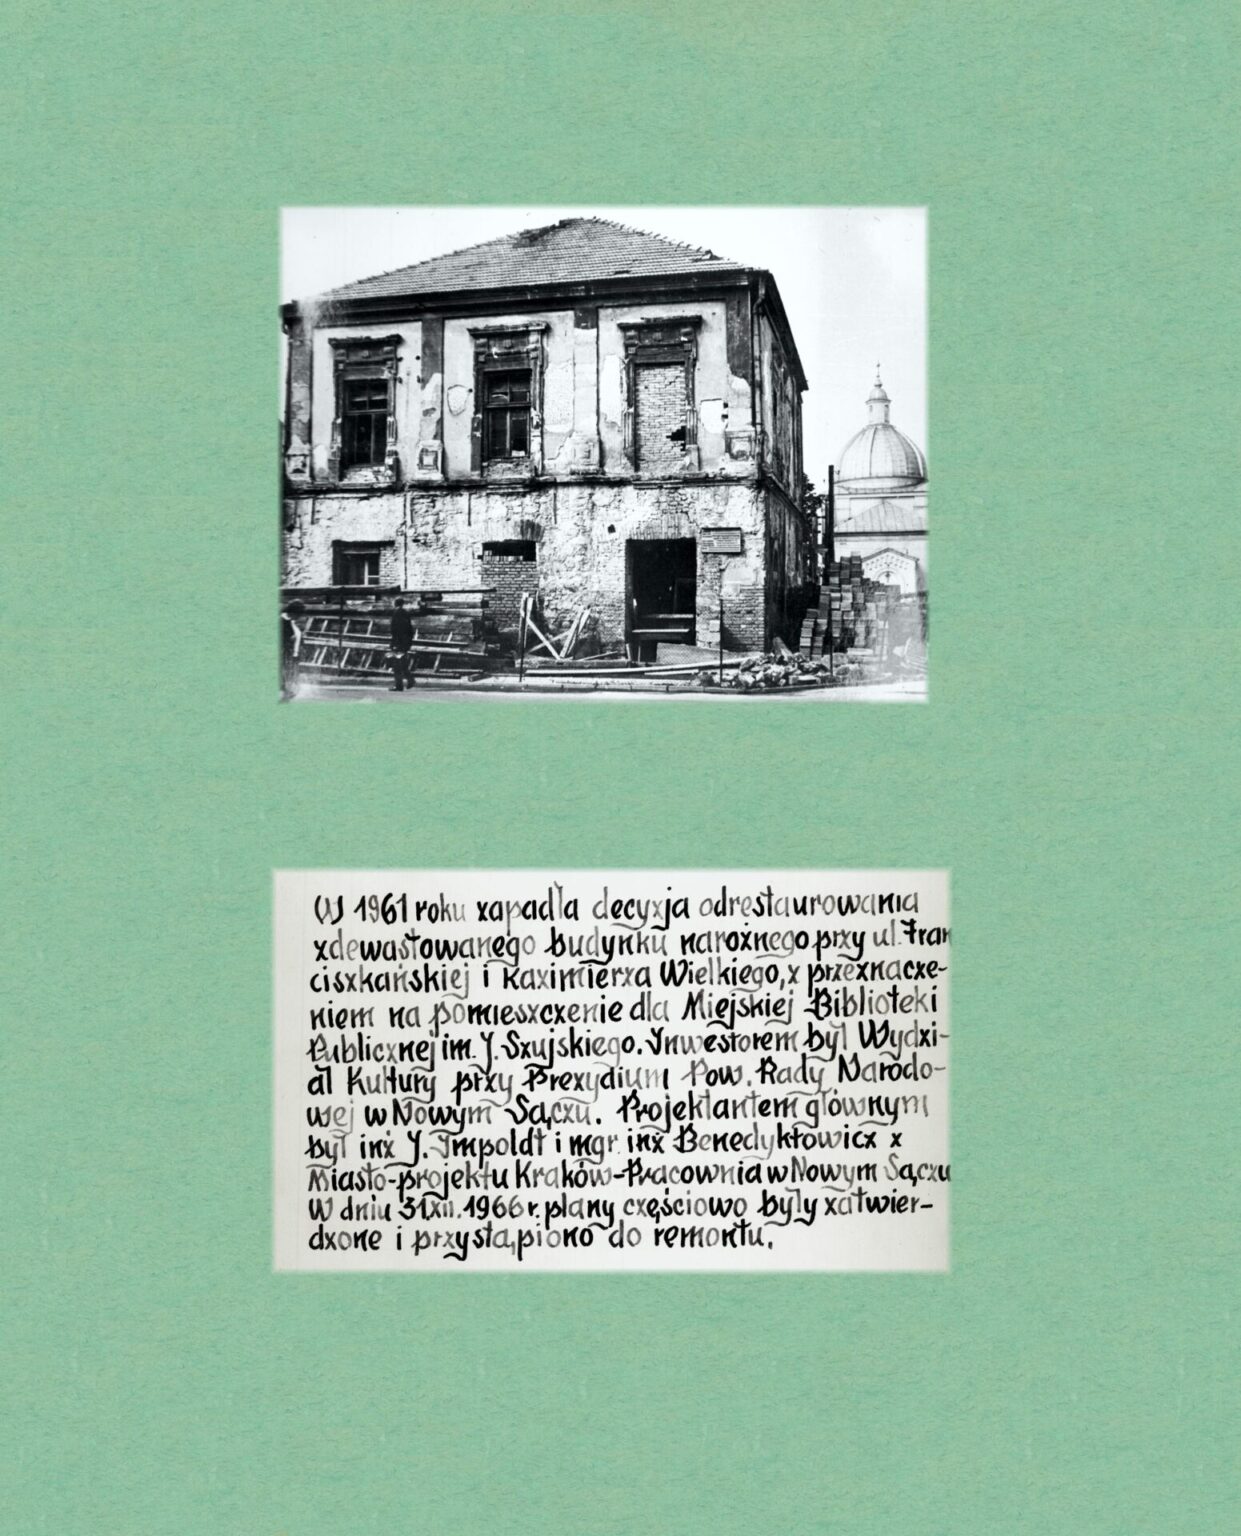 W 1961 roku zapadła decyzja odrestaurowania
zdewastowanego budynku narożnego przy ul. Fran
ciszkańskiej i Kazimierza Wielkiego, z przeznacze-
niem na pomieszczenie dla Miejskiej Biblioteki
Publicznej im. J. Szujskiego. Inwestorem był Wydzi-
ał Kultury przy Prezydium Pow. Rady Narodo-
wej w Nowym Sączu. Projektantem głównym
był inż J. Impoldt i mgr. inż Benedyktowicz z
Miasto-projektu Kraków-Pracownia w Nowym Sączu
W dniu 31.XII.1966 r. plany częściowo były zatwier-
dzone i przystąpiono do remontu.